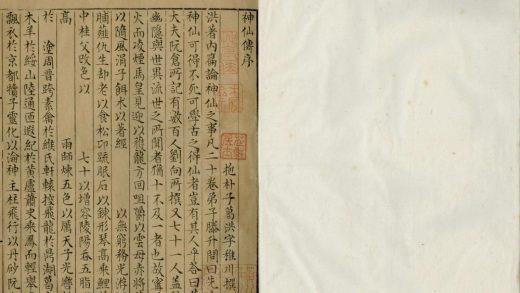 神仙傳序
抱朴子葛洪字稚川撰
洪著內篇論神仙之事凡二十卷弟子滕升問曰先
神仙可得不死可學古之得仙者豈有其人乎答曰
大夫阮倉所記有數百人劉向所撰又七十一人蓋
幽隱與世異流世之所聞者猶千不及一者也故甯
火而凌煙馬皇見迎以護龍方回咀嚼以雲母赤將
以隨風涓子餌朮以著經 以無窮務光游
脯薤仇生却老以食松卭疏服石以鍊形琴高乘鯉
中桂父改色以 七十以增容陵陽吞五脂
高 雨師煉五色以厲天子光
於 塗周晉跨素禽於緱氏軒轅控飛龍於鼎湖葛
木羊於綏山陸通匝遐紀於黃盧蕭史乘鳳而輕舉
飄衣於京都犢子靈化以淪神主柱飛行以丹砂阮